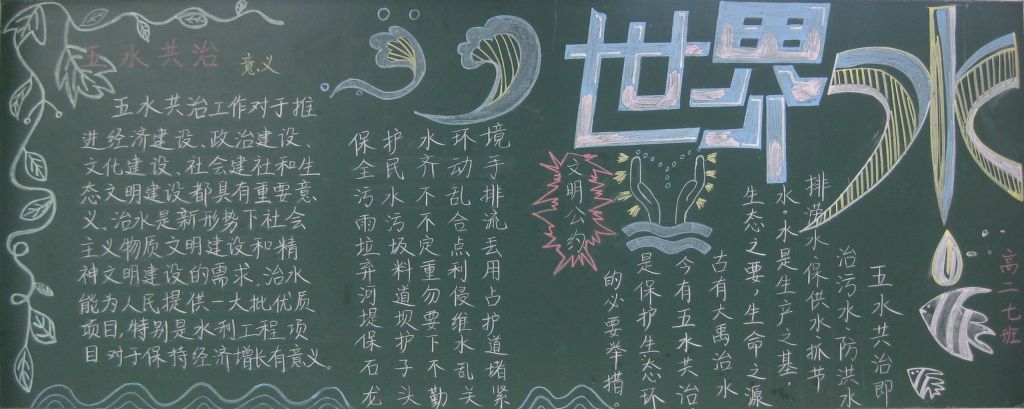 五水共治 意义
五水共治工作对于推
进经济建设、政治建设、
文化建设、社会建社和生
态文明建设都具有重要意
义、治水是新形势下社会
主义物质文明建设和精
神文明建设的需求、治水
能为人民提供一大批优质
项目,特别是水利工程项
目对于保持经济增长有意义。
保护水环境
全民齐动手
污水不乱排
雨污不合流
垃圾定点丢
弃料重利用
河道勿侵占
堤坝要维护
保护下水道
石子不乱堵
龙头勤关紧
世界水
文明公约
五水共治即
治污水、防洪水
排涝水、保供水、抓节
水。水是生产之基,
生态之要,生命之源
古有大禹治水
今有五水共治
是保护生态环
的必要举措。
高二七班